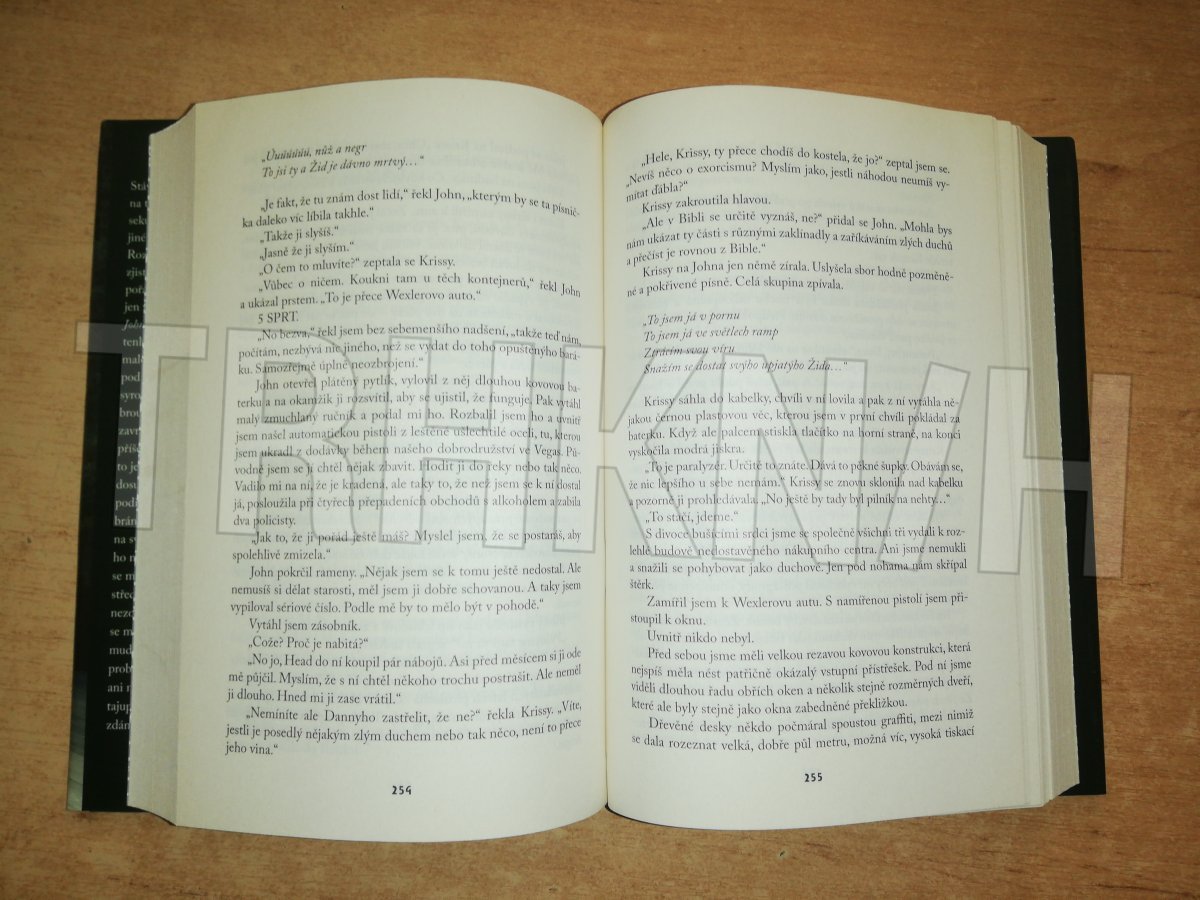 „Úuúúúúú, nůž a negr
To jsi ty a Žid je dávno mrtvý…“
„Je fakt, že tu znám dost lidí,“ řekl John, „kterým by se ta písnič-
ka daleko víc líbila takhle.“
„Takže ji slyšíš.“
„Jasně že ji slyším.“
„O čem to mluvíte?“ zeptala se Krissy.
„Vůbec o ničem. Koukni tam u těch kontejnerů,“ řekl John
a ukázal prstem. „To je přece Wexlerovo auto.“
5 SPRT.
„No bezva,“ řekl jsem bez sebemenšího nadšení, „takže teď nám,
počítám, nezbývá nic jiného, než se vydat do toho opuštěnýho bará-
ku. Samozřejmě úplně neozbrojení.“
John otevřel plátěný pytlík, vylovil z něj dlouhou kovovou ba-
terku a na okamžik ji rozsvítil, aby se ujistil, že funguje. Pak vytáhl
malý zmuchlaný ručník a podal mi ho. Rozbalil jsem ho a uvnitř
jsem našel automatickou pistoli z leštěné ušlechtilé oceli, tu, kterou
jsem ukradl z dodávky během našeho dobrodružství ve Vegas. Pů-
vodně jsem se jí chtěl nějak zbavit. Hodit ji do řeky nebo tak něco.
Vadilo mi na ní, že je kradená, ale taky to, že než jsem se k ní dostal
já, posloužila při čtyřech přepadeních obchodů s alkoholem a zabila
dva policisty.
„Jak to, že ji pořád ještě máš? Myslel jsem, že se postaráš, aby
spolehlivě zmizela.“
John pokrčil rameny. „Nějak jsem se k tomu ještě nedostal. Ale
nemusíš si dělat starosti, měl jsem ji dobře schovanou. A taky jsem
vypiloval sériové číslo. Podle mě by to mělo být v pohodě.“
Vytáhl jsem zásobník.
„Cože? Proč je nabitá?“
„No jo, Head do ní koupil pár nábojů. Asi před měsícem si ji ode
mě půjčil. Myslím, že s ní chtěl někoho trochu postrašit. Ale neměl
ji dlouho. Hned mi ji zase vrátil.“
„Nemíníte ale Dannyho zastřelit, že ne?“ řekla Krissy. „Víte,
jestli je posedlý nějakým zlým duchem nebo tak něco, není to přece
jeho vina.“
254
„Hele, Krissy, ty přece chodíš do kostela, že jo?“ zeptal jsem se.
„Nevíš něco o exorcismu? Myslím jako, jestli náhodou neumíš vy-
mítat ďábla?“
Krissy zakroutila hlavou.
„Ale v Bibli se určitě vyznáš, ne?“ přidal se John. „Mohla bys
nám ukázat ty části s různými zaklínadly a zaříkáváním zlých duchů
a přečíst je rovnou z Bible.“
Krissy na Johna jen němě zírala. Uslyšela sbor hodně pozměně-
né a pokřivené písně. Celá skupina zpívala.
„To jsem já v pornu
To jsem já ve světlech ramp
Ztrácím svou víru
Snažím se dostat svýho upjatýho Žida…“
Krissy sáhla do kabelky, chvíli v ní lovila a pak z ní vytáhla ně-
jakou černou plastovou věc, kterou jsem v první chvíli pokládal za
baterku. Když ale palcem stiskla tlačítko na horní straně, na konci
vyskočila modrá jiskra.
„To je paralyzér. Určitě to znáte. Dává to pěkné šupky. Obávám se,
že nic lepšího u sebe nemám.“ Krissy se znovu sklonila nad kabelku
a pozorně ji prohledávala. „No ještě by tady byl pilník na nehty…“
„To stačí, jdeme.“
S divoce bušícími srdci jsme se společně všichni tři vydali k roz-
lehlé budově nedostavěného nákupního centra. Ani jsme nemukli
a snažili se pohybovat jako duchové. Jen pod nohama nám skřípal
štěrk.
Zamířil jsem k Wexlerovu autu. S namířenou pistolí jsem při-
stoupil k oknu.
Uvnitř nikdo nebyl.
Před sebou jsme měli velkou rezavou kovovou konstrukci, která
nejspíš měla nést patřičně okázalý vstupní přístřešek. Pod ní jsme
viděli dlouhou řadu obřích oken a několik stejně rozměrných dveří,
které ale byly stejně jako okna zabedněné překližkou.
Dřevěné desky někdo počmáral spoustou graffiti, mezi nimiž
se dala rozeznat velká, dobře půl metru, možná víc, vysoká tiskací
255
TRHKNIH